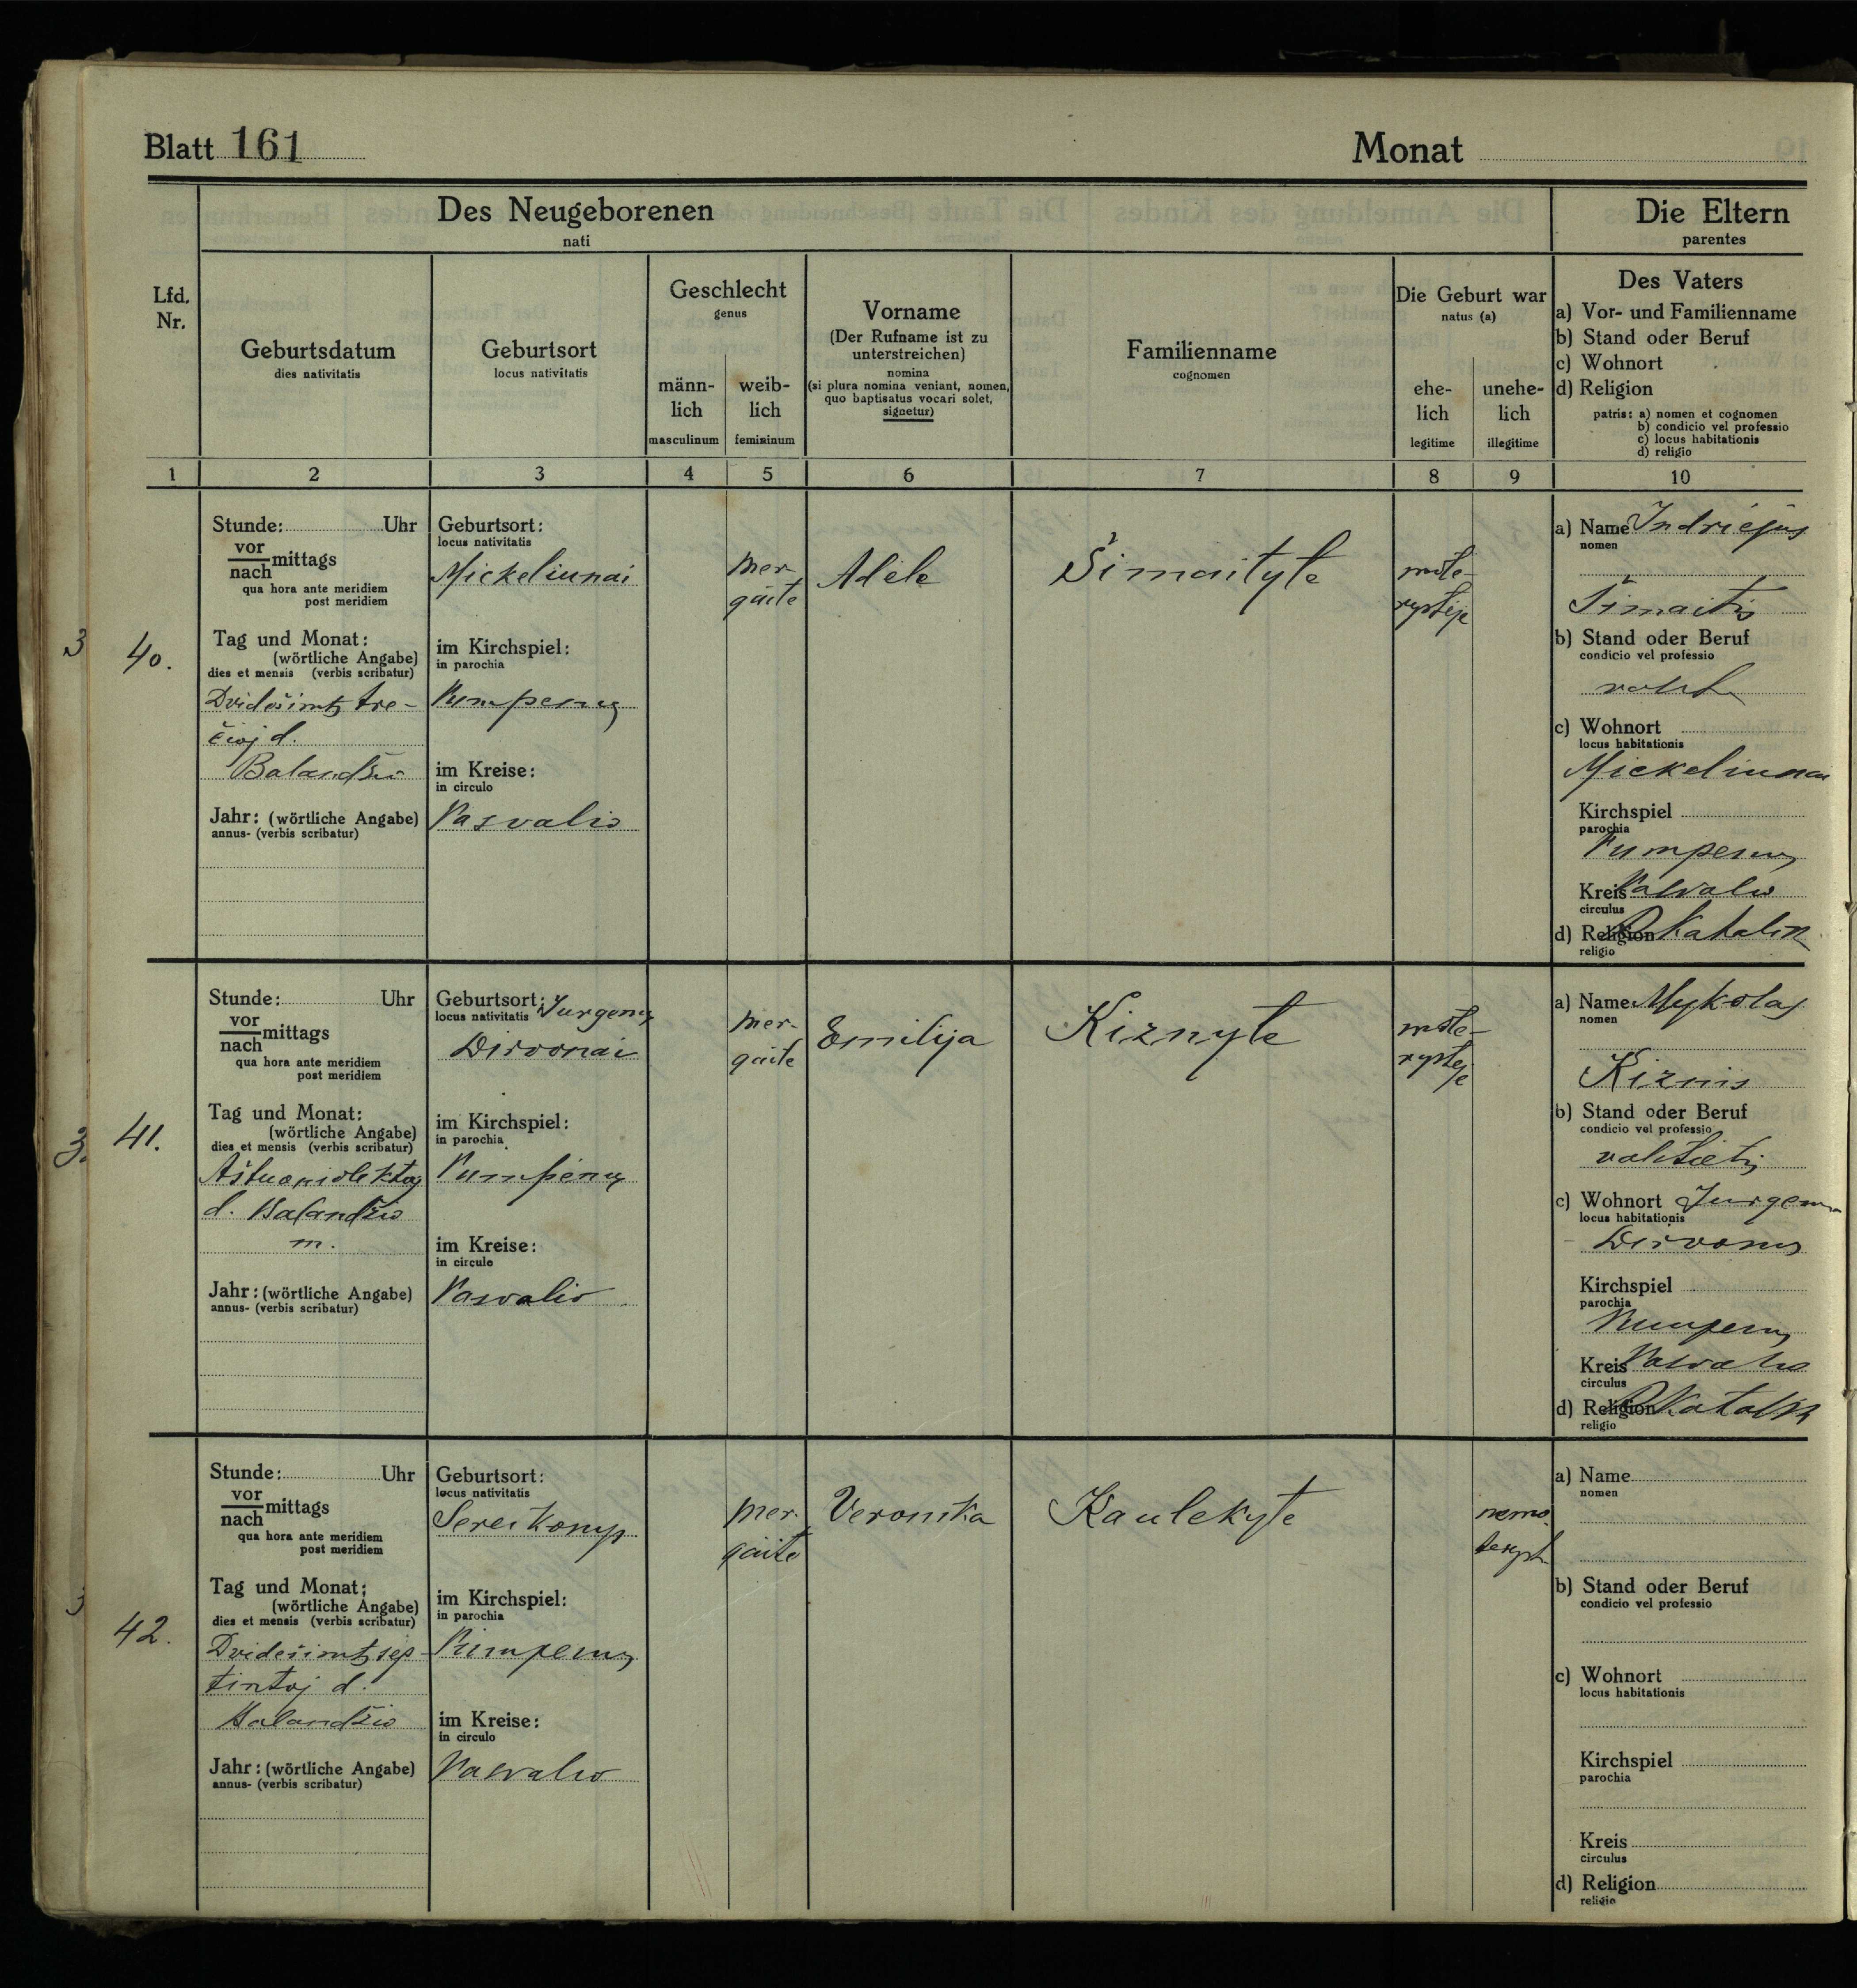 Blatt 161
Monat
Des Neugeborenen
nati
Die Eltern
parentes
Lfd.
Nr.
Geburtsdatum
dies nativitatis
Geburtsort
locus nativitatis
Geschlecht
genus
männ-
lich
masculinum
weib-
lich
femininum
Vorname
(Der Rufname ist zu
unterstreichen)
nomina
(si plura nomina veniant, nomen,
quo baptisatus vocari solet,
signetur)
Familienname
cognomen
Die Geburt war
natus (a)
ehe-
lich
legitime
unehe-
lich
illegitime
Des Vaters
a) Vor- und Familienname
b) Stand oder Beruf
c) Wohnort
d) Religion
patris: a) nomen et cognomen
b) condicio vel professio
c) locus habitationis
d) religio
1 2 3 4 5 6 7 8 9 10
3 40.
Stunde: Uhr
vor
nach mittags
qua hora ante meridiem
post meridiem
Tag und Monat:
(wörtliche Angabe)
dies et mensis (verbis scribatur)
Dvidešimtų tre-
čioj d.
Balandžio
Jahr: (wörtliche Angabe)
annus- (verbis scribatur)
Geburtsort:
locus nativitatis
Mickeliunai
im Kirchspiel:
in parochia
Pumpenų
im Kreise:
in circulo
Pasvalio
mer-
gaitė
Adelė
Šimaitytė
mote-
rystėje
a) Name Indriejus
nomen
Šimaitis
b) Stand oder Beruf
condicio vel professio
c) Wohnort
locus habitationis
Mickeliunai
Kirchspiel
parochia
Pumpenų
Kreis Pasvalio
circulus
d) Religion R Katalik
religio
3. 41.
Stunde: Uhr
vor
nach mittags
qua hora ante meridiem
post meridiem
Tag und Monat:
(wörtliche Angabe)
dies et mensis (verbis scribatur)
Aštuonioliktoj
d. Balandžio
m.
Jahr: (wörtliche Angabe)
annus- (verbis scribatur)
Geburtsort: Jurgenų
locus nativitatis
Dirvonai
im Kirchspiel:
in parochia
Pumpėnų
im Kreise:
in circulo
Pasvalio
mer-
gaitė
Emilija
Kiznytė
mote-
rystėje
a) Name Mykolas
nomen
Kiznis
b) Stand oder Beruf
condicio vel professio
valstietis
c) Wohnort Jurgenų
locus habitationis
Dirvonų
Kirchspiel
parochia
Pumpenų
Kreis Pasvalio
circulus
d) Religion R Katalik
religio
3 42.
Stunde: Uhr
vor
nach mittags
qua hora ante meridiem
post meridiem
Tag und Monat:
(wörtliche Angabe)
dies et mensis (verbis scribatur)
Dvidešimtų sep-
tintoj d.
Balandžio
Jahr: (wörtliche Angabe)
annus- (verbis scribatur)
Geburtsort:
locus nativitatis
im Kirchspiel:
in parochia
Pumpenų
im Kreise:
in circulo
Pasvalio
mer-
gaitė
Veronika
Kaulekytė
nemo-
teryst
a) Name
nomen
b) Stand oder Beruf
condicio vel professio
c) Wohnort
locus habitationis
Kirchspiel
parochia
Kreis
circulus
d) Religion
religio